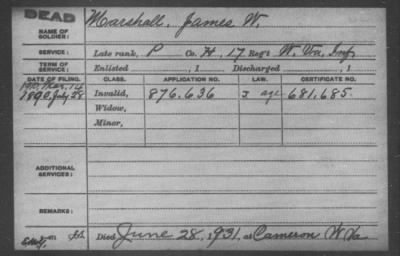 DEAD
NAME OF SOLDIER: Marshall, James W.
SERVICE: Late rank, P Co. H, 17 Reg't W. Va. Inf.
TERM OF SERVICE: Enlisted , 1 Discharged , 1
DATE OF FILING. CLASS. APPLICATION NO. LAW. CERTIFICATE NO.
Mar. 14
1890, July 28 Invalid, 876.636 age 681.685
Widow,
Minor,
ADDITIONAL SERVICES:
REMARKS:
Died June 28, 1931, at Cameron W Va